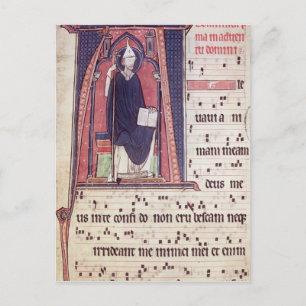 ma in aduen
tu domini
A
le
uaui a ni
mam meam
deus me
us in te confi do non eru bescam neq
irrideant me inimici mei et enim